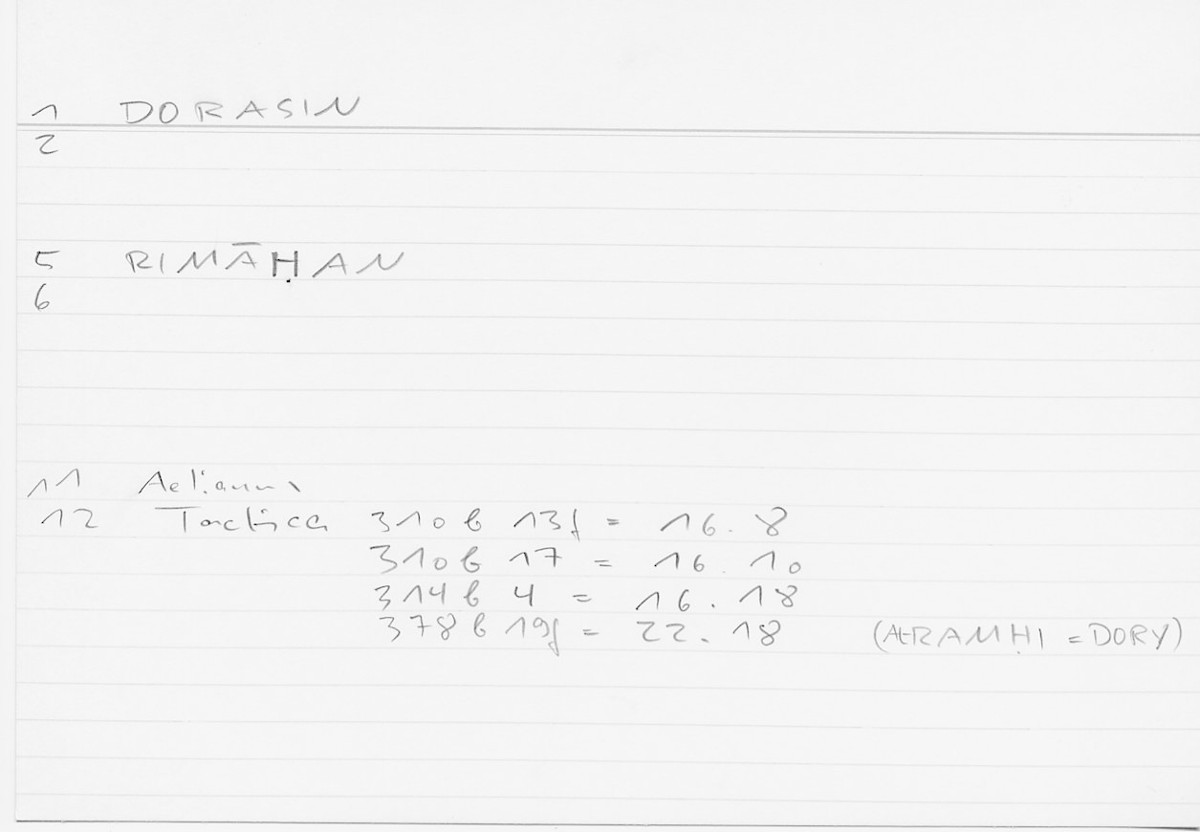 1 DORASIN
2
5 RIMĀḤAN
6
11 Aelianus
12 Tactica 310 b 13f = 16. 8
310 b 17 = 16. 10
314 b 4 = 16. 18
378 b 19f = 22. 18 (AR-RAMḤI = DORY)